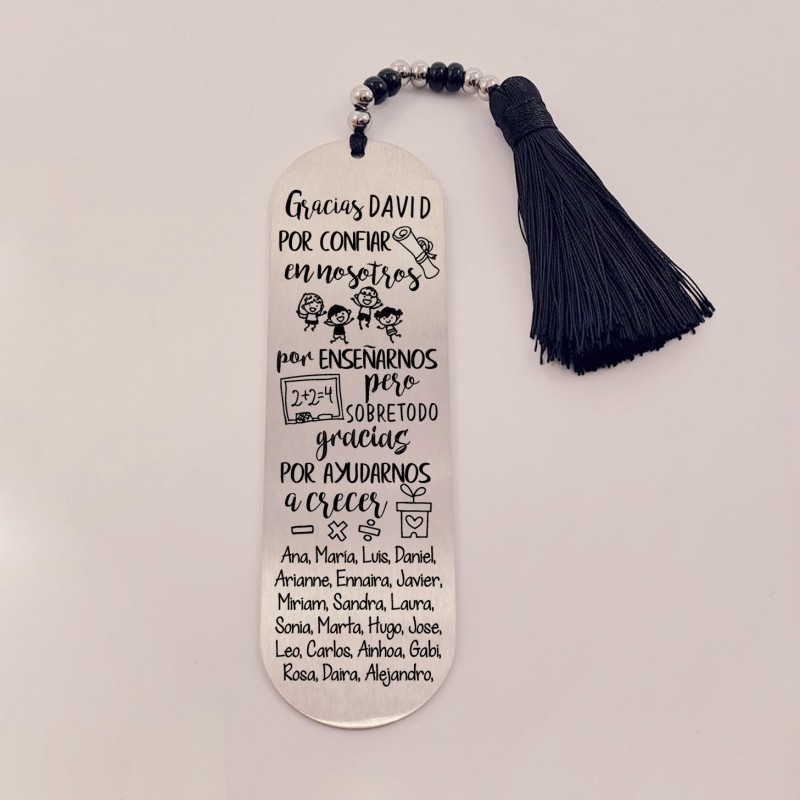 Gracias DAVID
POR CONFIAR
en nosotros
por ENSEÑARNOS
pero
2+2=4
SOBRETODO
gracias
POR AYUDARNOS
a crecer
− × ÷
Ana, María, Luis, Daniel,
Arianne, Ennaira, Javier,
Miriam, Sandra, Laura,
Sonia, Marta, Hugo, Jose,
Leo, Carlos, Ainhoa, Gabi,
Rosa, Daira, Alejandro,